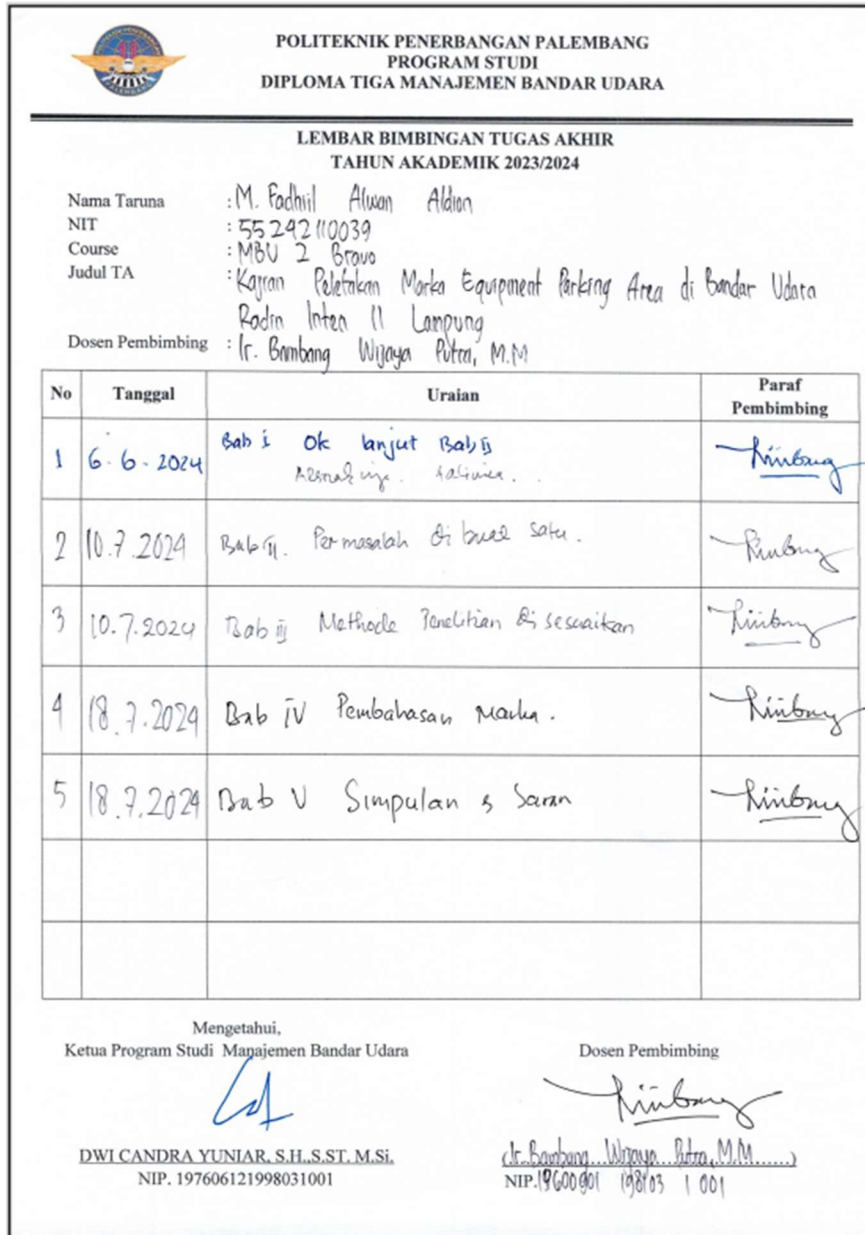 POLITEKNIK PENERBANGAN PALEMBANG
PROGRAM STUDI
DIPLOMA TIGA MANAJEMEN BANDAR UDARA
LEMBAR BIMBINGAN TUGAS AKHIR
TAHUN AKADEMIK 2023/2024
Nama Taruna : M. Fadhiil Alwan Aldion
NIT : 55242110039
Course : MBU 2 Bravo
Judul TA : Kajian Peletakan Marka Equipment Parking Area di Bandar Udara
Radin Inten II Lampung
Dosen Pembimbing : Ir. Bambang Wijaya Putra, M.M
No Tanggal Uraian Paraf Pembimbing
1 6-6-2024 Bab I Ok lanjut Bab II
2 10.7.2024 Bab II. Permasalah di buat satu.
3 10.7.2024 Bab III Methode Penelitian disesuaikan
4 18.7.2024 Bab IV Pembahasan Marka.
5 18.7.2024 Bab V Simpulan & Saran
Mengetahui,
Ketua Program Studi Manajemen Bandar Udara
Dosen Pembimbing
DWI CANDRA YUNIAR, S.H.,S.ST. M.Si.
NIP. 197606121998031001
(Ir. Bambang Wijaya Putra, M.M......)
NIP.19600901 198103 1 001